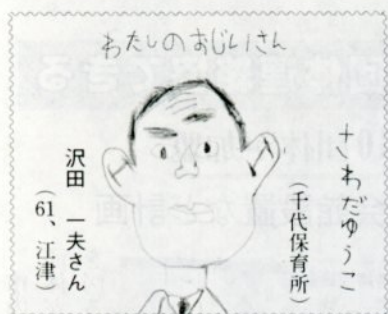 わたしのおじいさん
さわだゆうこ
(千代保育所)
沢田　一夫さん
(61、江津)